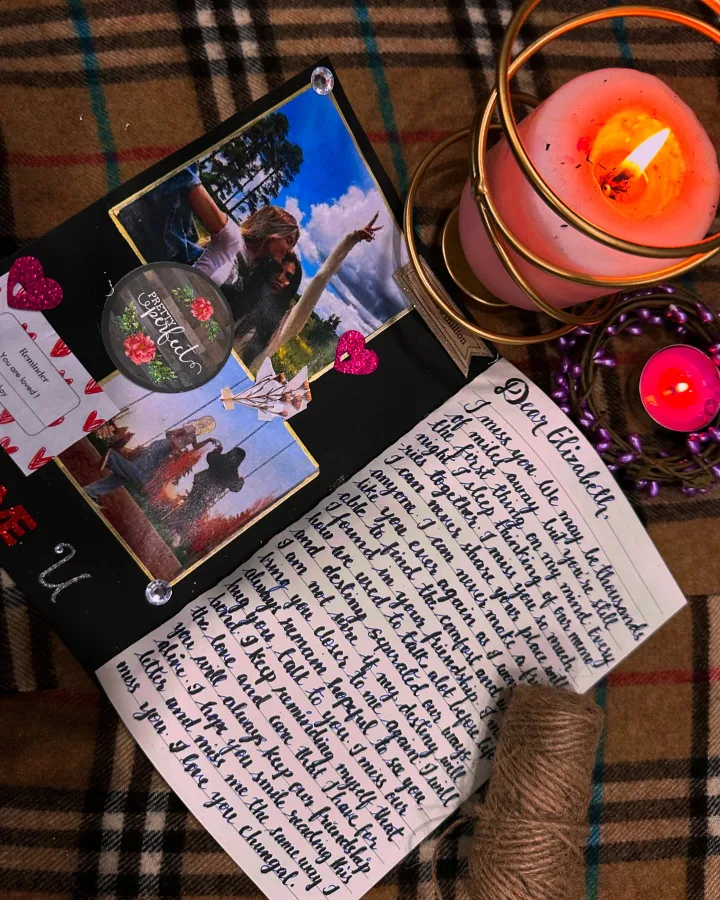 Reminder
You are loved!
PRETTY
perfect
million
ME
U
Dear Elizabeth,
I miss you. We may be thousands
of miles away but you're still
the first thing on my mind. Every
night I sleep thinking of our many
visits together. I miss you so much,
I can never share your place with
anyone. I can never meet a
like you ever again as I
able to find the comfort and
I found in your friendship. I
how we used to talk alot before life
and destiny separated our ways
I am not sure if my destiny will
bring you closer to me again I will
always remain hopeful to see you
hug you, talk to you. I miss us
and I keep reminding myself that
the love and care we have for
you will always keep our friendship
alive. I hope you smile reading this
letter and miss me the same way I
miss you. I love you chungal.